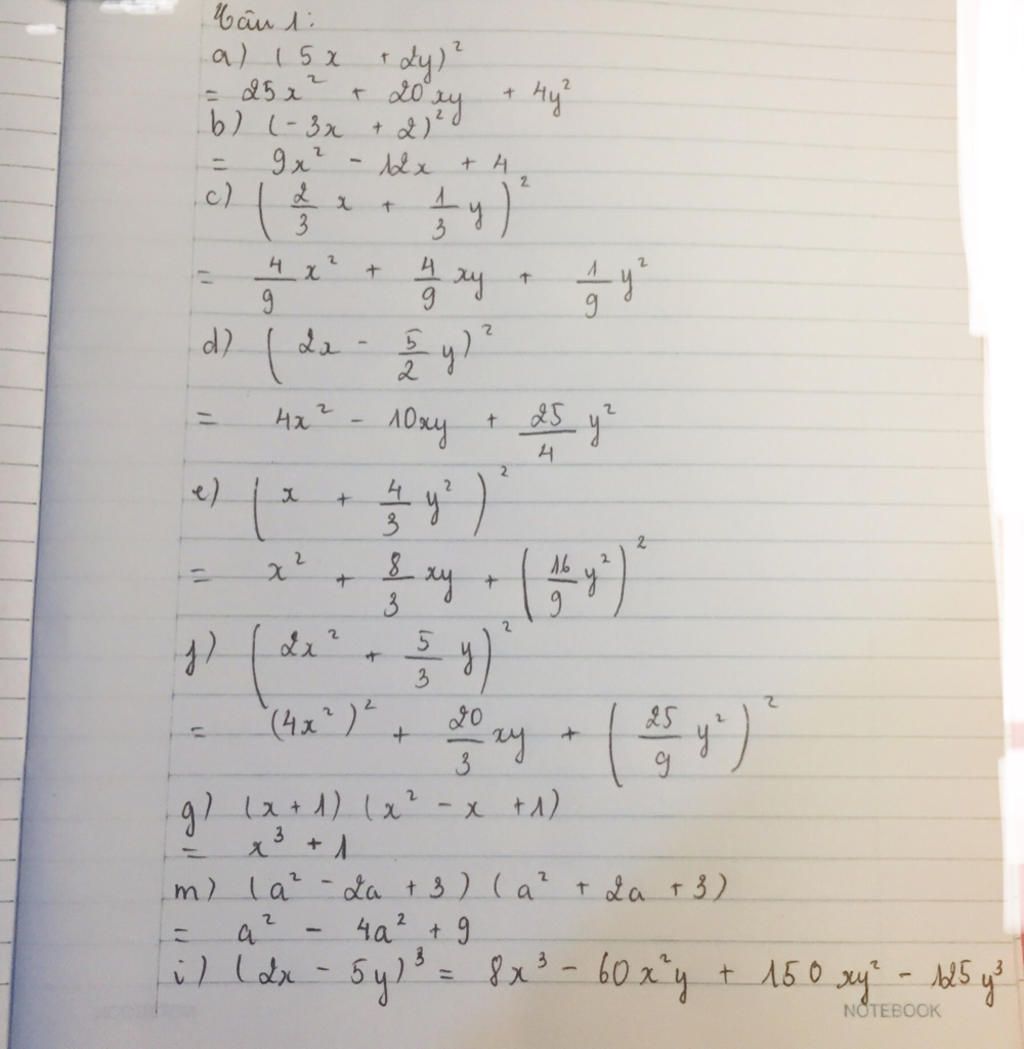 Câu 1:
a) (5x + 2y)²
= 25x² + 20xy + 4y²
b) (-3x + 2)²
= 9x² - 12x + 4
c) (2/3 x + 1/3 y)²
= 4/9 x² + 4/9 xy + 1/9 y²
d) (2x - 5/2 y)²
= 4x² - 10xy + 25/4 y²
e) (x + 4/3 y²)²
= x² + 8/3 xy + (16/9 y²)²
f) (2x² + 5/3 y)²
= (4x²)² + 20/3 xy + (25/9 y²)²
g) (x + 1) (x² - x + 1)
= x³ + 1
m) (a² - 2a + 3) (a² + 2a + 3)
= a² - 4a² + 9
i) (2x - 5y)³ = 8x³ - 60x²y + 150xy² - 125y³
NOTEBOOK